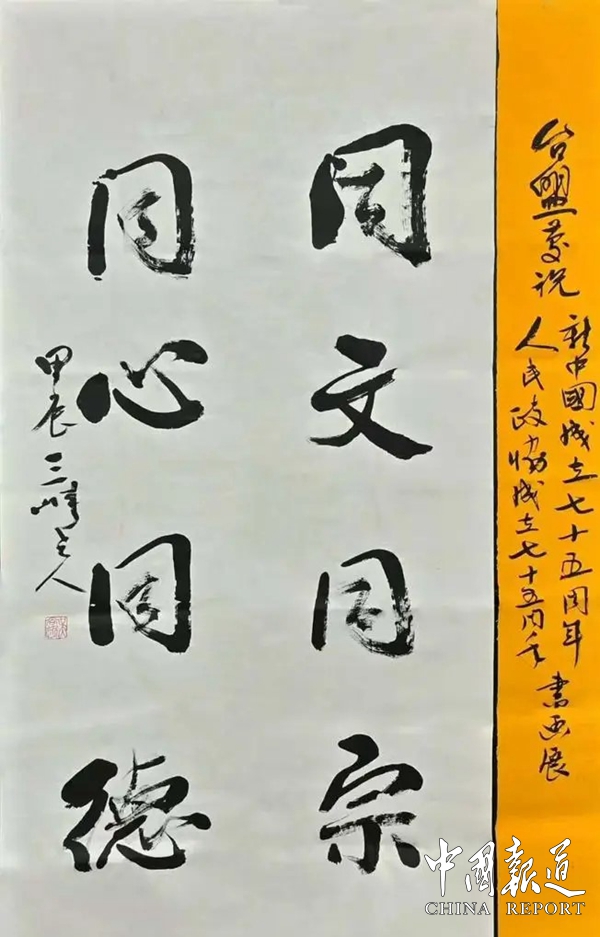 台盟庆祝
新中國成立七十五周年
人民政协成立七十五周年
書画展
同文同宗
同心同德
甲辰
老人
中国报道
CHINA REPORT